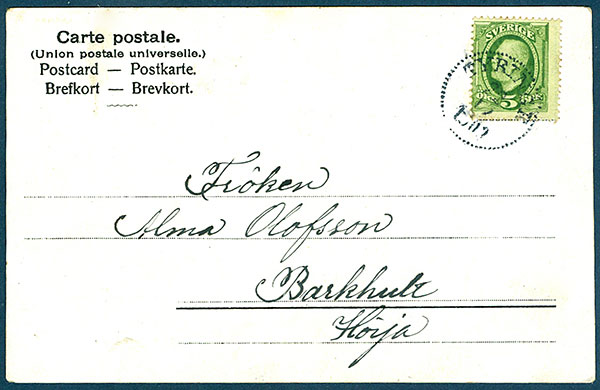 Carte postale.
(Union postale universelle.)
Postcard — Postkarte.
Brefkort — Brevkort.
SVERIGE
5
Fröken
Alma Olofsson
Barkhult
Höija